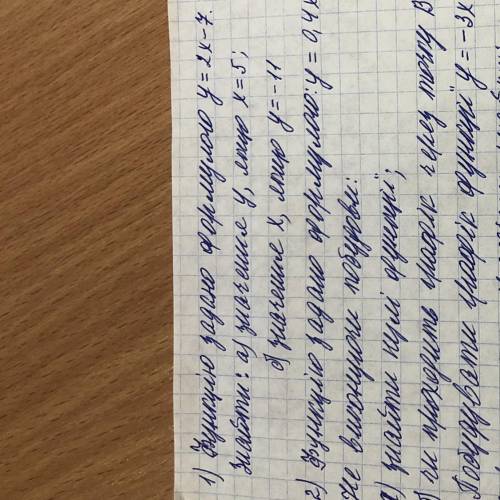 1) Функцію задано формулою y=2x-7.
Знайти: а) значення y, якщо x=5;
б) значення x, якщо y=-11
2) Функцію задано формулою: y=0,4x
Не виконуючи побудови:
а) знайти нулі функції;
чи проходить графік через точку В
Побудувати графік функції y=-3x